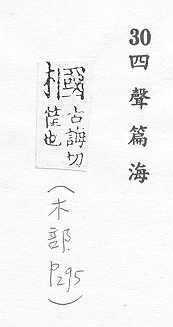 30 四聲篇海
槶 古誨切
也
（木部 P295）